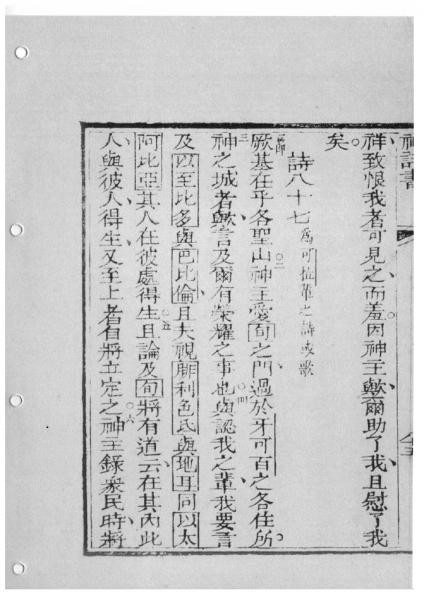 神詩書
祥致恨我者可見之而羞因神主歟爾助了我且慰了我
矣
詩八十七 為可拉輩之詩或歌
一節厥基在乎各聖山○二神主愛旬之門過於牙可百之各住所。
三神之城者歟言及爾有榮耀之事也○四與認我之輩我要言
及以至比多與巴比倫且夫視腓利色氏與地耳同以太
阿比亞其人在彼處得生○五且論及旬將有道云在其內此
人與彼人得生又至上者自將立定之○六神主錄衆民時將